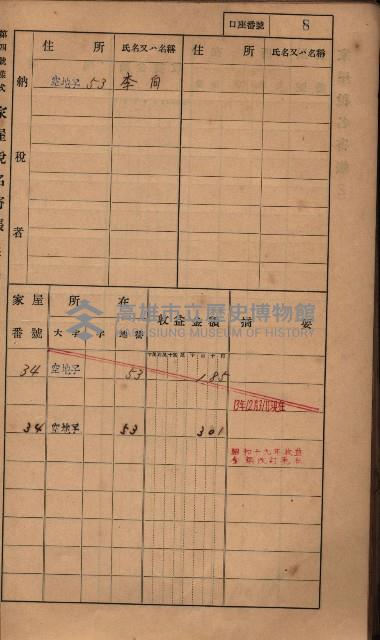 口座番號 8
第四號樣式 家屋稅名寄帳
納稅者
住所 氏名又ハ名稱 住所 氏名又ハ名稱
空地子 53 李
家屋番號 所在 大字 字 地番 收益金額 摘要
34 空地子 53 185
13年12月31日現在
34 空地子 53 301
昭和十九年收益
高雄市立歷史博物館
KAOHSIUNG MUSEUM OF HISTORY